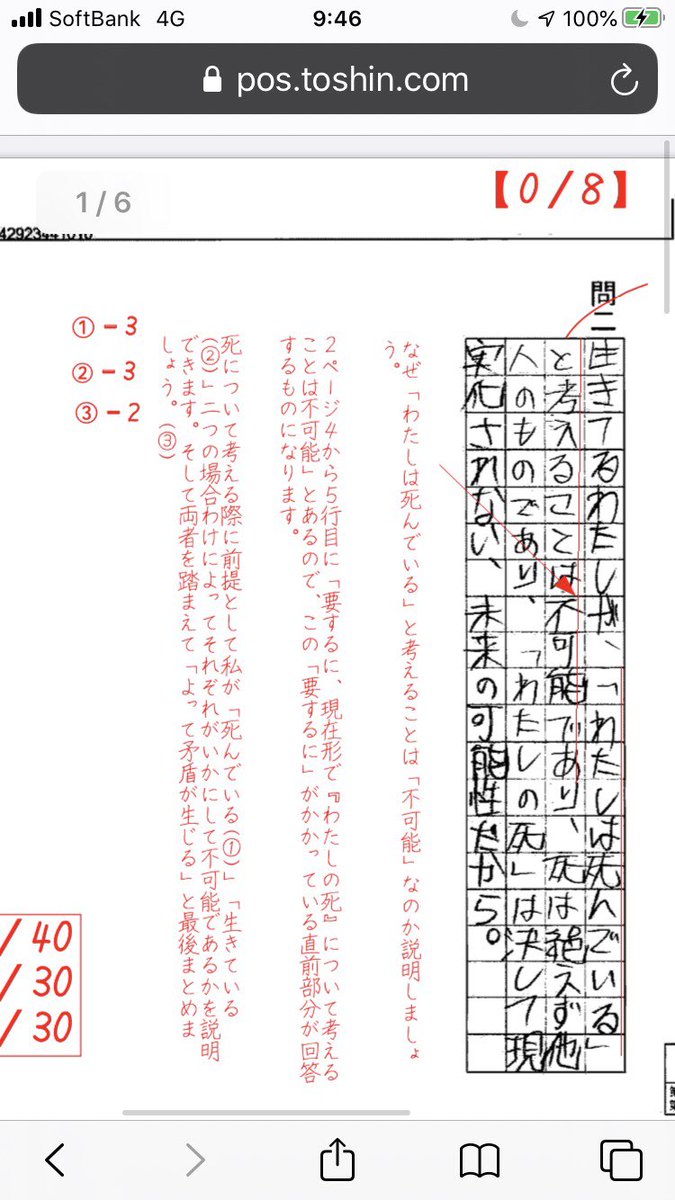 SoftBank 4G 9:46 100%
pos.toshin.com
1/6
【0/8】
問二
生きてるわたしが、「わたしは死んでいる」
と考えることは不可能であり、死は絶えず他
人のものであり、「わたしの死」は決して現
実化されない、未来の可能性だから。
なぜ「わたしは死んでいる」と考えることは「不可能」なのか説明しましょ
う。
2ページ4から5行目に「要するに、現在形で『わたしの死』について考える
ことは不可能」とあるので、この「要するに」がかかっている直前部分が回答
するものになります。
死について考える際に前提として私が「死んでいる(①)」「生きている
(②)」二つの場合わけによってそれぞれがいかにして不可能であるかを説明
できます。そして両者を踏まえて「よって矛盾が生じる」と最後まとめま
しょう。(③)
①-3
②-3
③-2
/40
/30
/30